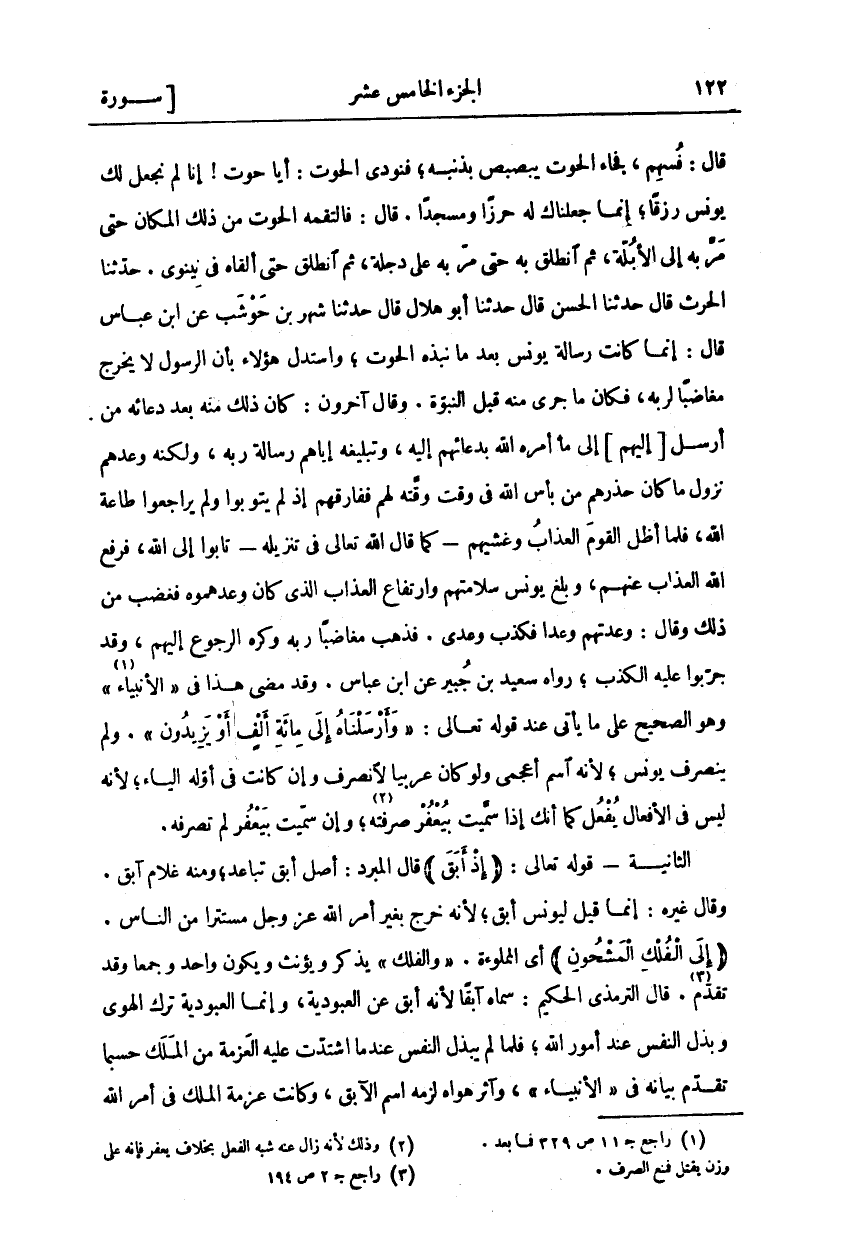 ١٢٢ الجزء الخامس عشر [ ســـورة
قال : فُسهم ، فجاء الحوت يبصبص بذنبـه ؛ فنودى الحوت : أيا حوت ! إنا لم نجعل لك
يونس رزقًا ؛ إنمـا جعلناك له حرزًا ومسجدًا . قال : فالتقمه الحوت من ذلك المكان حتى
مَرّ به إلى الأُبُلّة ، ثم آنطلق به حتى مرّ به على دجلة ، ثم آنطلق حتى ألقاه فى نِينوى . حدّثنا
الحرث قال حدثنا الحسن قال حدثنا أبو هلال قال حدثنا شهر بن حَوْشَب عن ابن عبـاس
قال : إنمـا كانت رسالة يونس بعد ما نبذه الحوت ؛ واستدل هؤلاء بأن الرسول لا يخرج
مغاضبًا لربه ، فـكان ما جرى منه قبل النبوّة . وقال آخرون : كان ذلك منه بعد دعائه من
أرسـل [ إليهم ] إلى ما أمره الله بدعائهم إليه ، وتبليغه إياهم رسالة ربه ، ولـكنه وعدهم
نزول ما كان حذرهم من بأس الله فى وقت وقّته لهم ففارقهم إذ لم يتوبوا ولم يراجعوا طاعة
الله ، فلما أظل القومَ العذابُ وغشيهم – كما قال الله تعالى فى تنزيله – تابوا إلى الله ، فرفع
الله العذاب عنهـم ، وبلغ يونس سلامتهم وارتفاع العذاب الذى كان وعدهموه فغضب من
ذلك وقال : وعدتهم وعدا فكذب وعدى . فذهب مغاضبًا ربه وكره الرجوع إليهم ، وقد
جرّبوا عليه الكذب ؛ رواه سعيد بن جُبير عن ابن عباس . وقد مضى هـذا فى « الأنبياء » (١)
وهو الصحيح على ما يأتى عند قوله تعـالى : « وَأَرْسَلْنَاهُ إِلَى مِائَةِ أَلْفٍ أَوْ يَزِيدُونَ » . ولم
ينصرف يونس ؛ لأنه آسم أعجمى ولو كان عربيا لآنصرف وإن كانت فى أوّله اليـاء ؛ لأنه
ليس فى الأفعال يُفْعُل كما أنك إذا سمَّيت بيُعْفُرْ صرفته (٢) ؛ وإن سمّيت بيَعْفُر لم تصرفه .
الثانيـــة – قوله تعالى : ﴿ إِذْ أَبَقَ ﴾ قال المبرد : أصل أبق تباعد ؛ ومنه غلام آبق .
وقال غيره : إنمـا قيل ليونس أبق ؛ لأنه خرج بغير أمر الله عز وجل مستترا من النـاس .
﴿ إِلَى الْفُلْكِ الْمَشْحُونِ ﴾ أى المملوءة . « والفلك » يذكر ويؤنث ويكون واحد وجمعا وقد
تقدّم (٣) . قال الترمذى الحكيم : سماه آبقًا لأنه أبق عن العبودية ، وإنمـا العبودية ترك الهوى
وبذل النفس عند أمور الله ؛ فلما لم يبذل النفس عندما اشتدّت عليه العَزمة من المَلَك حسبما
تقـدّم بيانه فى « الأنبيـاء » ، وآثر هواه لزمه اسم الآبق ، وكانت عزمة الملك فى أمر الله
(١) راجع جـ ١١ ص ٣٢٩ فـما بعد . (٢) وذلك لأنه زال عنه شبه الفعل بخلاف يعفر فإنه على
وزن يقتل فمنع الصرف . (٣) راجع جـ ٢ ص ١٩٤